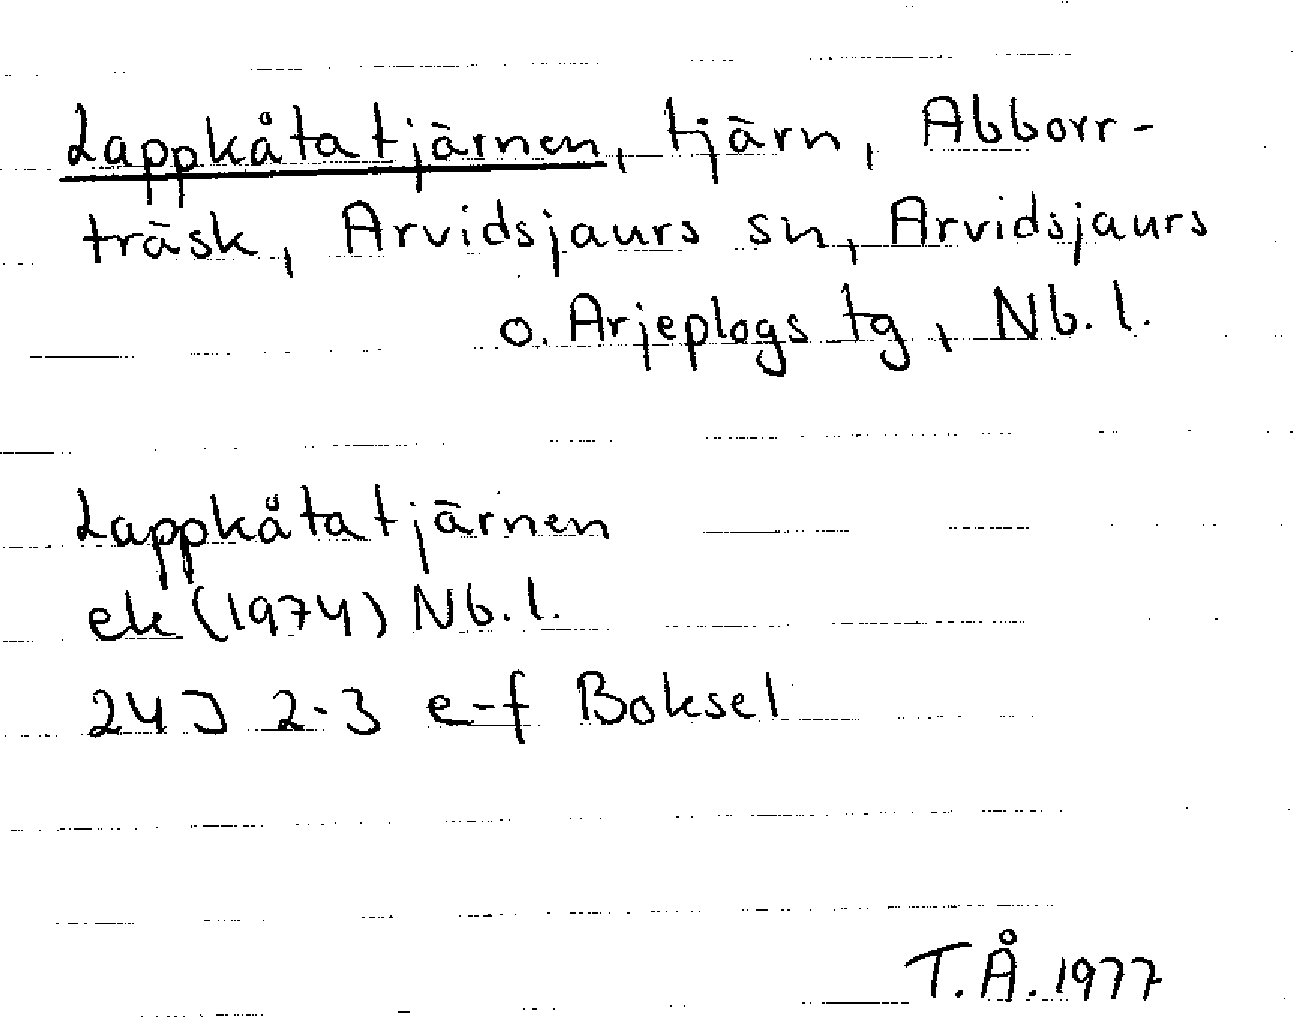 Lappkåtatjärnen, tjärn, Abborr-
träsk, Arvidsjaurs sn, Arvidsjaurs
o. Arjeplogs tg, Nb. l.
Lappkåtatjärnen
ek (1974) Nb. l.
24J 2-3 e-f Boksel
T.Å. 1977